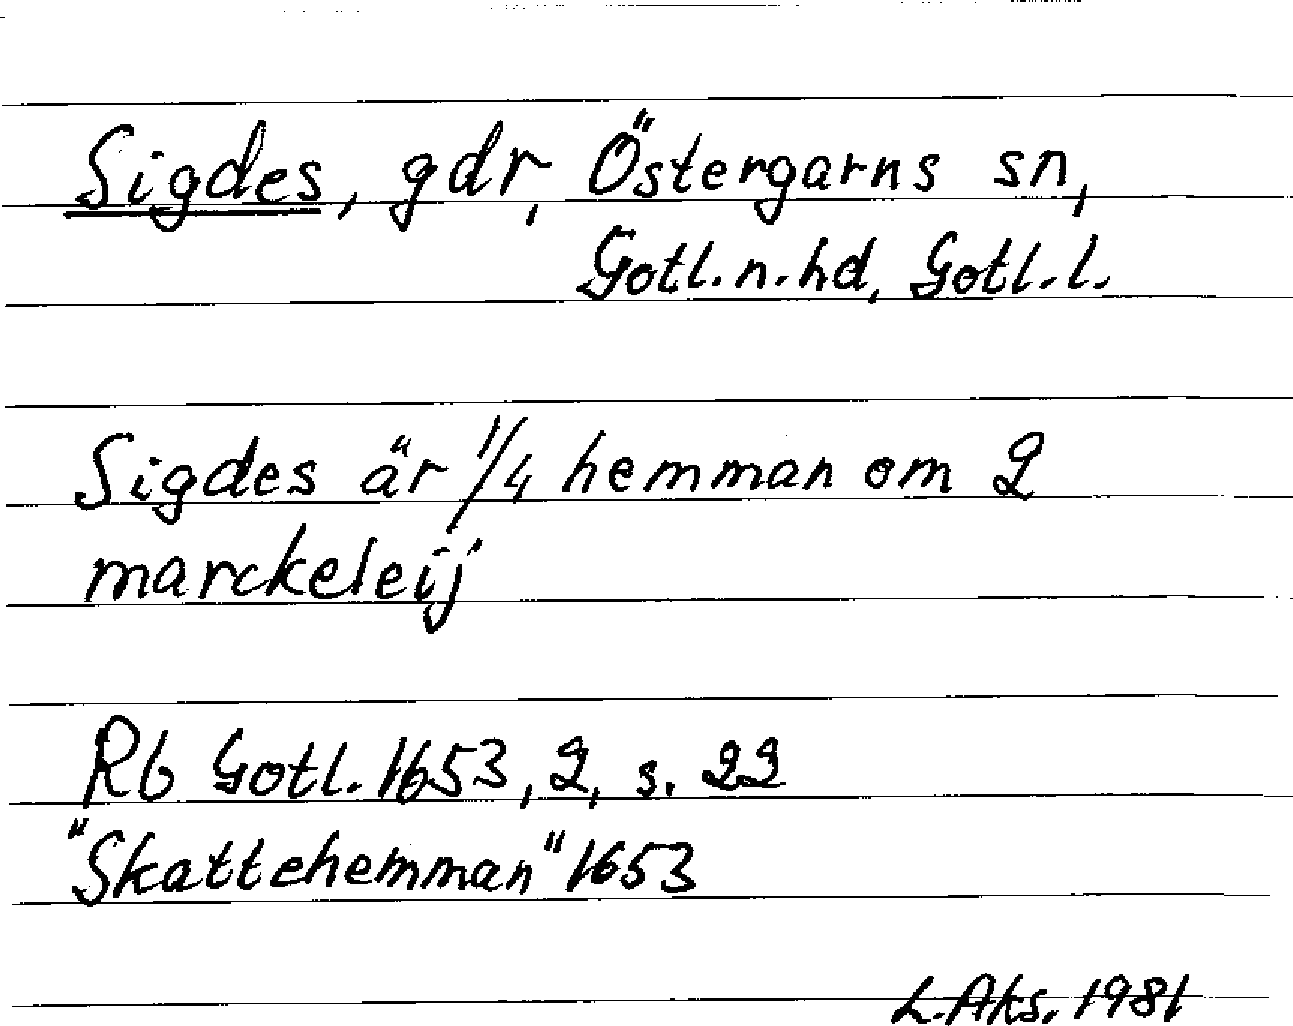 Sigdes, gdr, Östergarns sn,
Gotl. n. hd, Gotl. l.
Sigdes är 1/4 hemman om 2
marckeleij
Rb Gotl. 1653, 2, s. 22
"Skattehemman" 1653
L. Aks. 1981